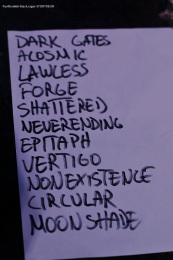 DARK GATES
ACOSMIC
LAWLESS
FORGE
SHATTERED
NEVERENDING
EPITAPH
VERTIGO
NONEXISTENCE
CIRCULAR
MOONSHADE